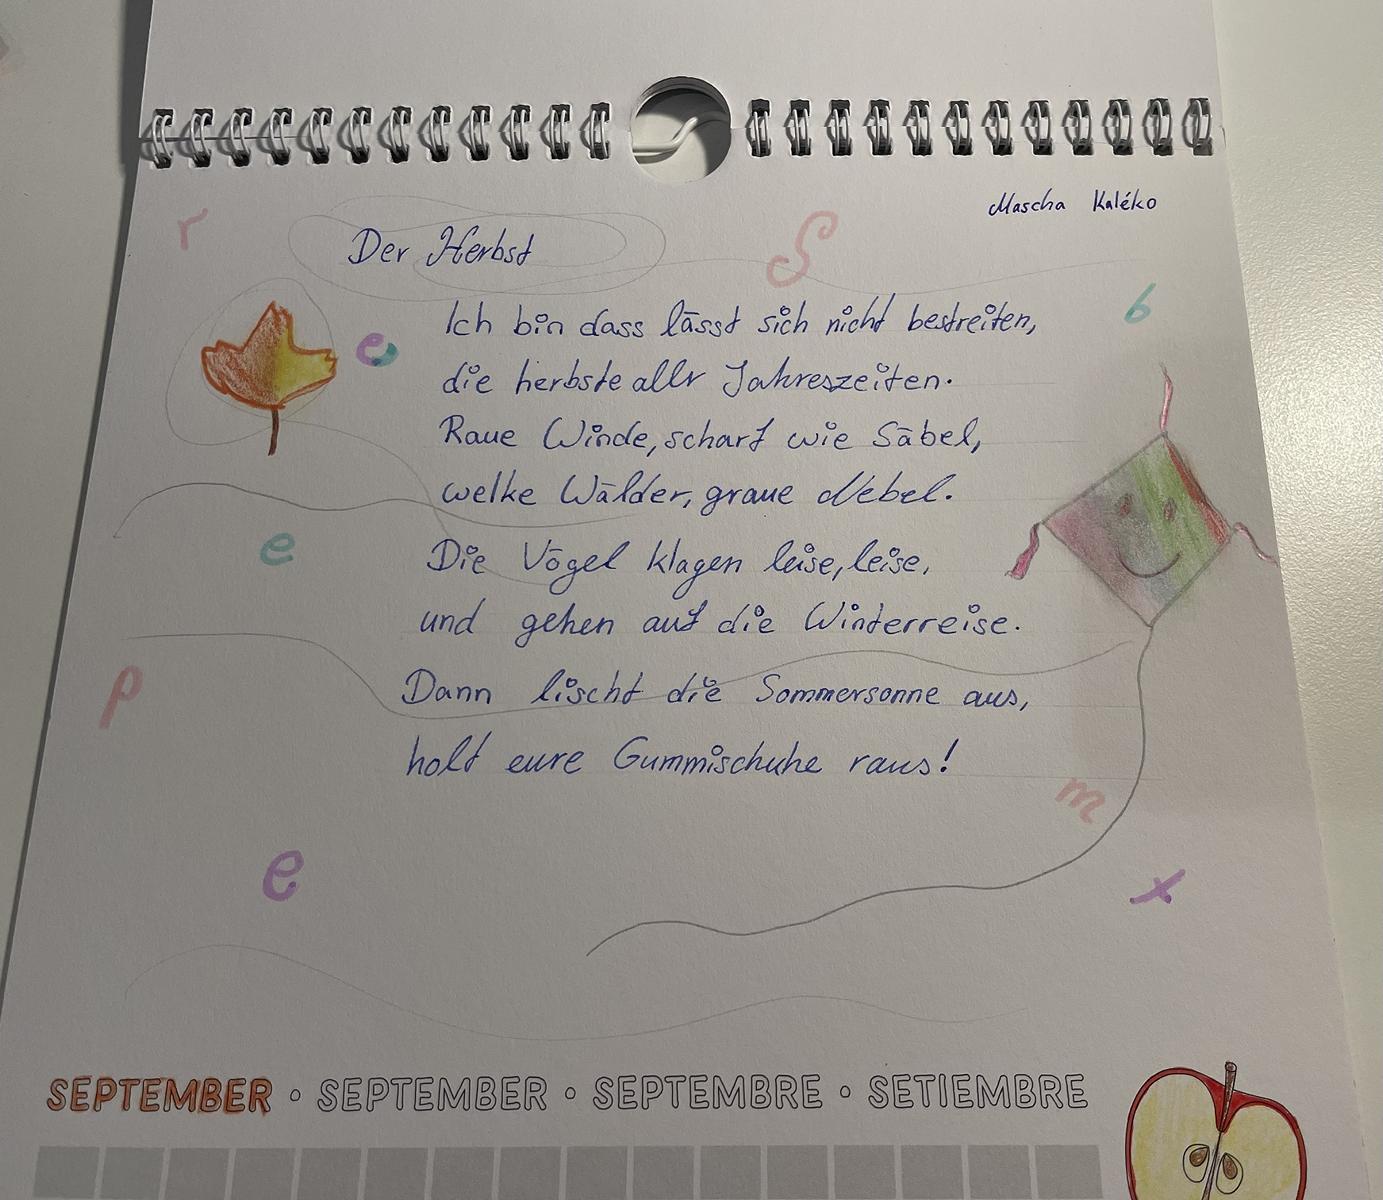 Mascha Kaléko
r
S
Der Herbst
b
e
Ich bin dass lässt sich nicht bestreiten,
die herbste allr Jahreszeiten.
Raue Winde, scharf wie Säbel,
welke Wälder, graue Nebel.
e
Die Vögel klagen leise, leise,
und gehen auf die Winterreise.
p
Dann lischt die Sommersonne aus,
holt eure Gummischuhe raus!
m
e
x
SEPTEMBER • SEPTEMBER • SEPTEMBRE • SETIEMBRE